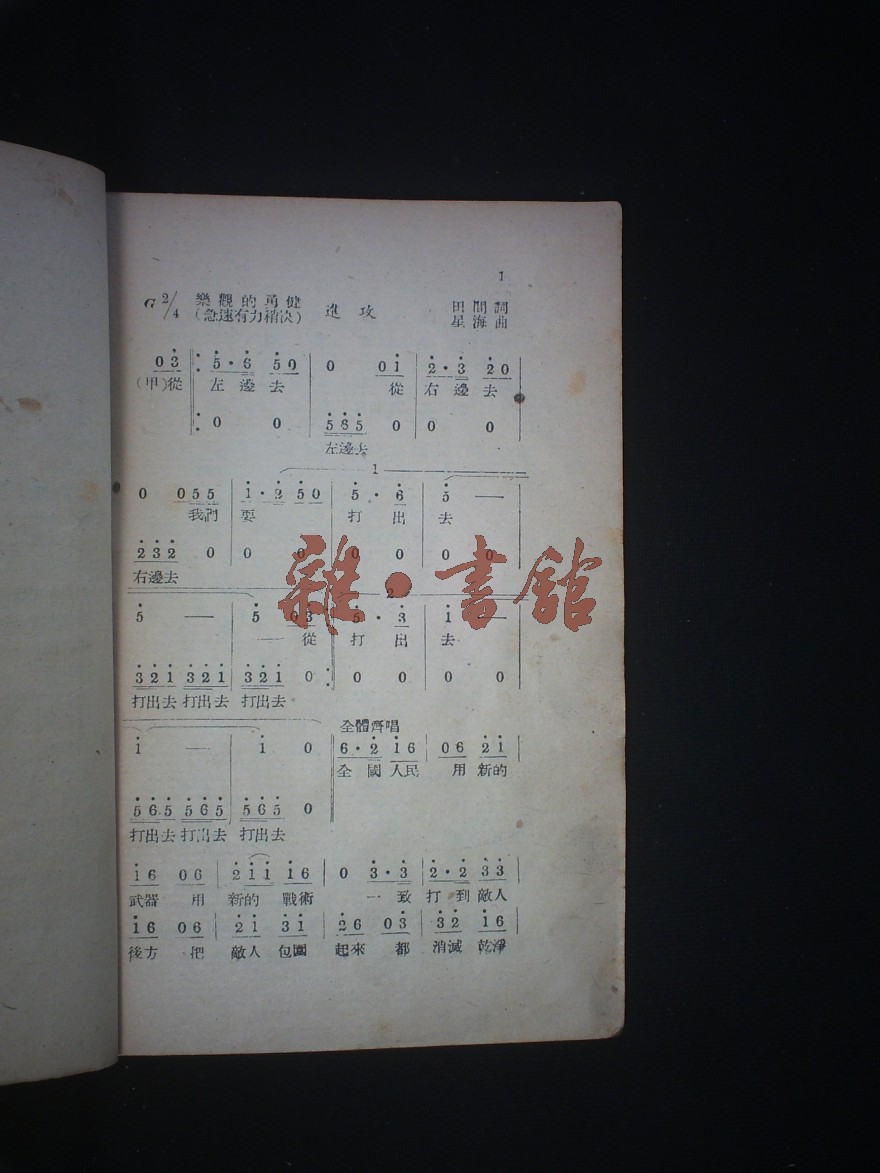 1
G 2/4 樂觀的勇健 進攻 田間詞
(急速有力稍决) 星海曲
0 3 5·6 5 0 0 0 1 2·3 2 0
(甲)從 左邊去 從 右邊去
0 0 5 6 5 0 0 0
左邊去
1
0 0 5 5 1·2 5 0 5·6 5 —
我們 要 打出 去
2 3 2 0 0 0 0 0 0 0
右邊去
2
5 — 5 0 3 5·3 1 —
— 從 打出 去
3 2 1 3 2 1 3 2 1 0 0 0 0 0
打出去 打出去 打出去
全體齊唱
1 — 1 0 6·2 1 6 0 6 2 1
全國人民 用 新的
5 6 5 5 6 5 5 6 5 0
打出去 打出去 打出去
1 6 0 6 2 1 1 1 6 0 3·3 2·2 3 3
武器 用 新的 戰術 一致 打到敵人
1 6 0 6 2 1 3 1 2 6 0 3 3 2 1 6
後方 把 敵人 包圍 起來 都 消滅 乾淨
雜·書館